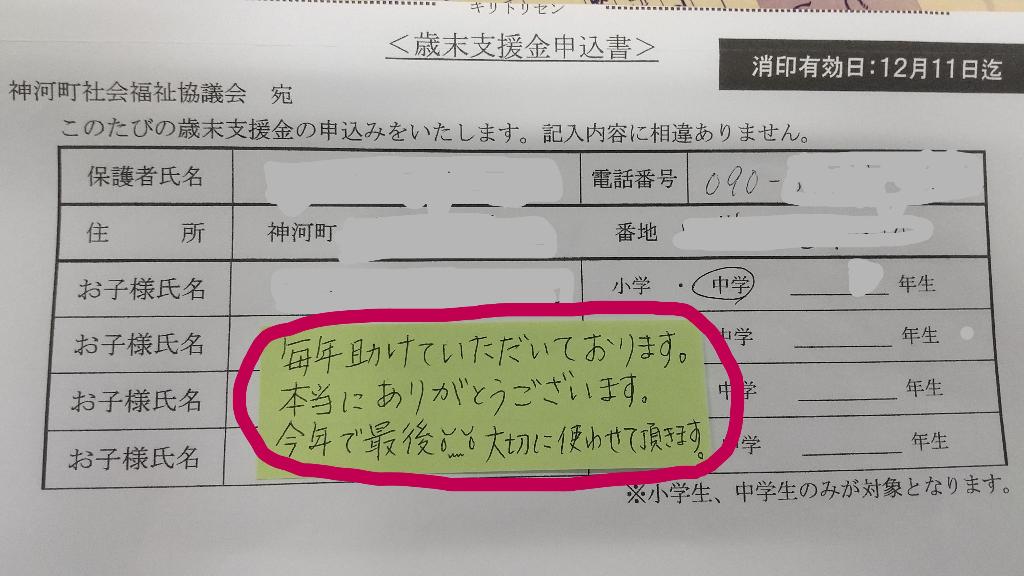 キリトリセン
＜歳末支援金申込書＞
消印有効日：12月11日迄
神河町社会福祉協議会 宛
このたびの歳末支援金の申込みをいたします。記入内容に相違ありません。
保護者氏名 電話番号 090-
住 所 神河町 番地
お子様氏名 小学 ・ 中学 年生
お子様氏名 中学 年生
お子様氏名 中学 年生
お子様氏名 中学 年生
毎年助けていただいております。
本当にありがとうございます。
今年で最後 大切に使わせて頂きます。
※小学生、中学生のみが対象となります。